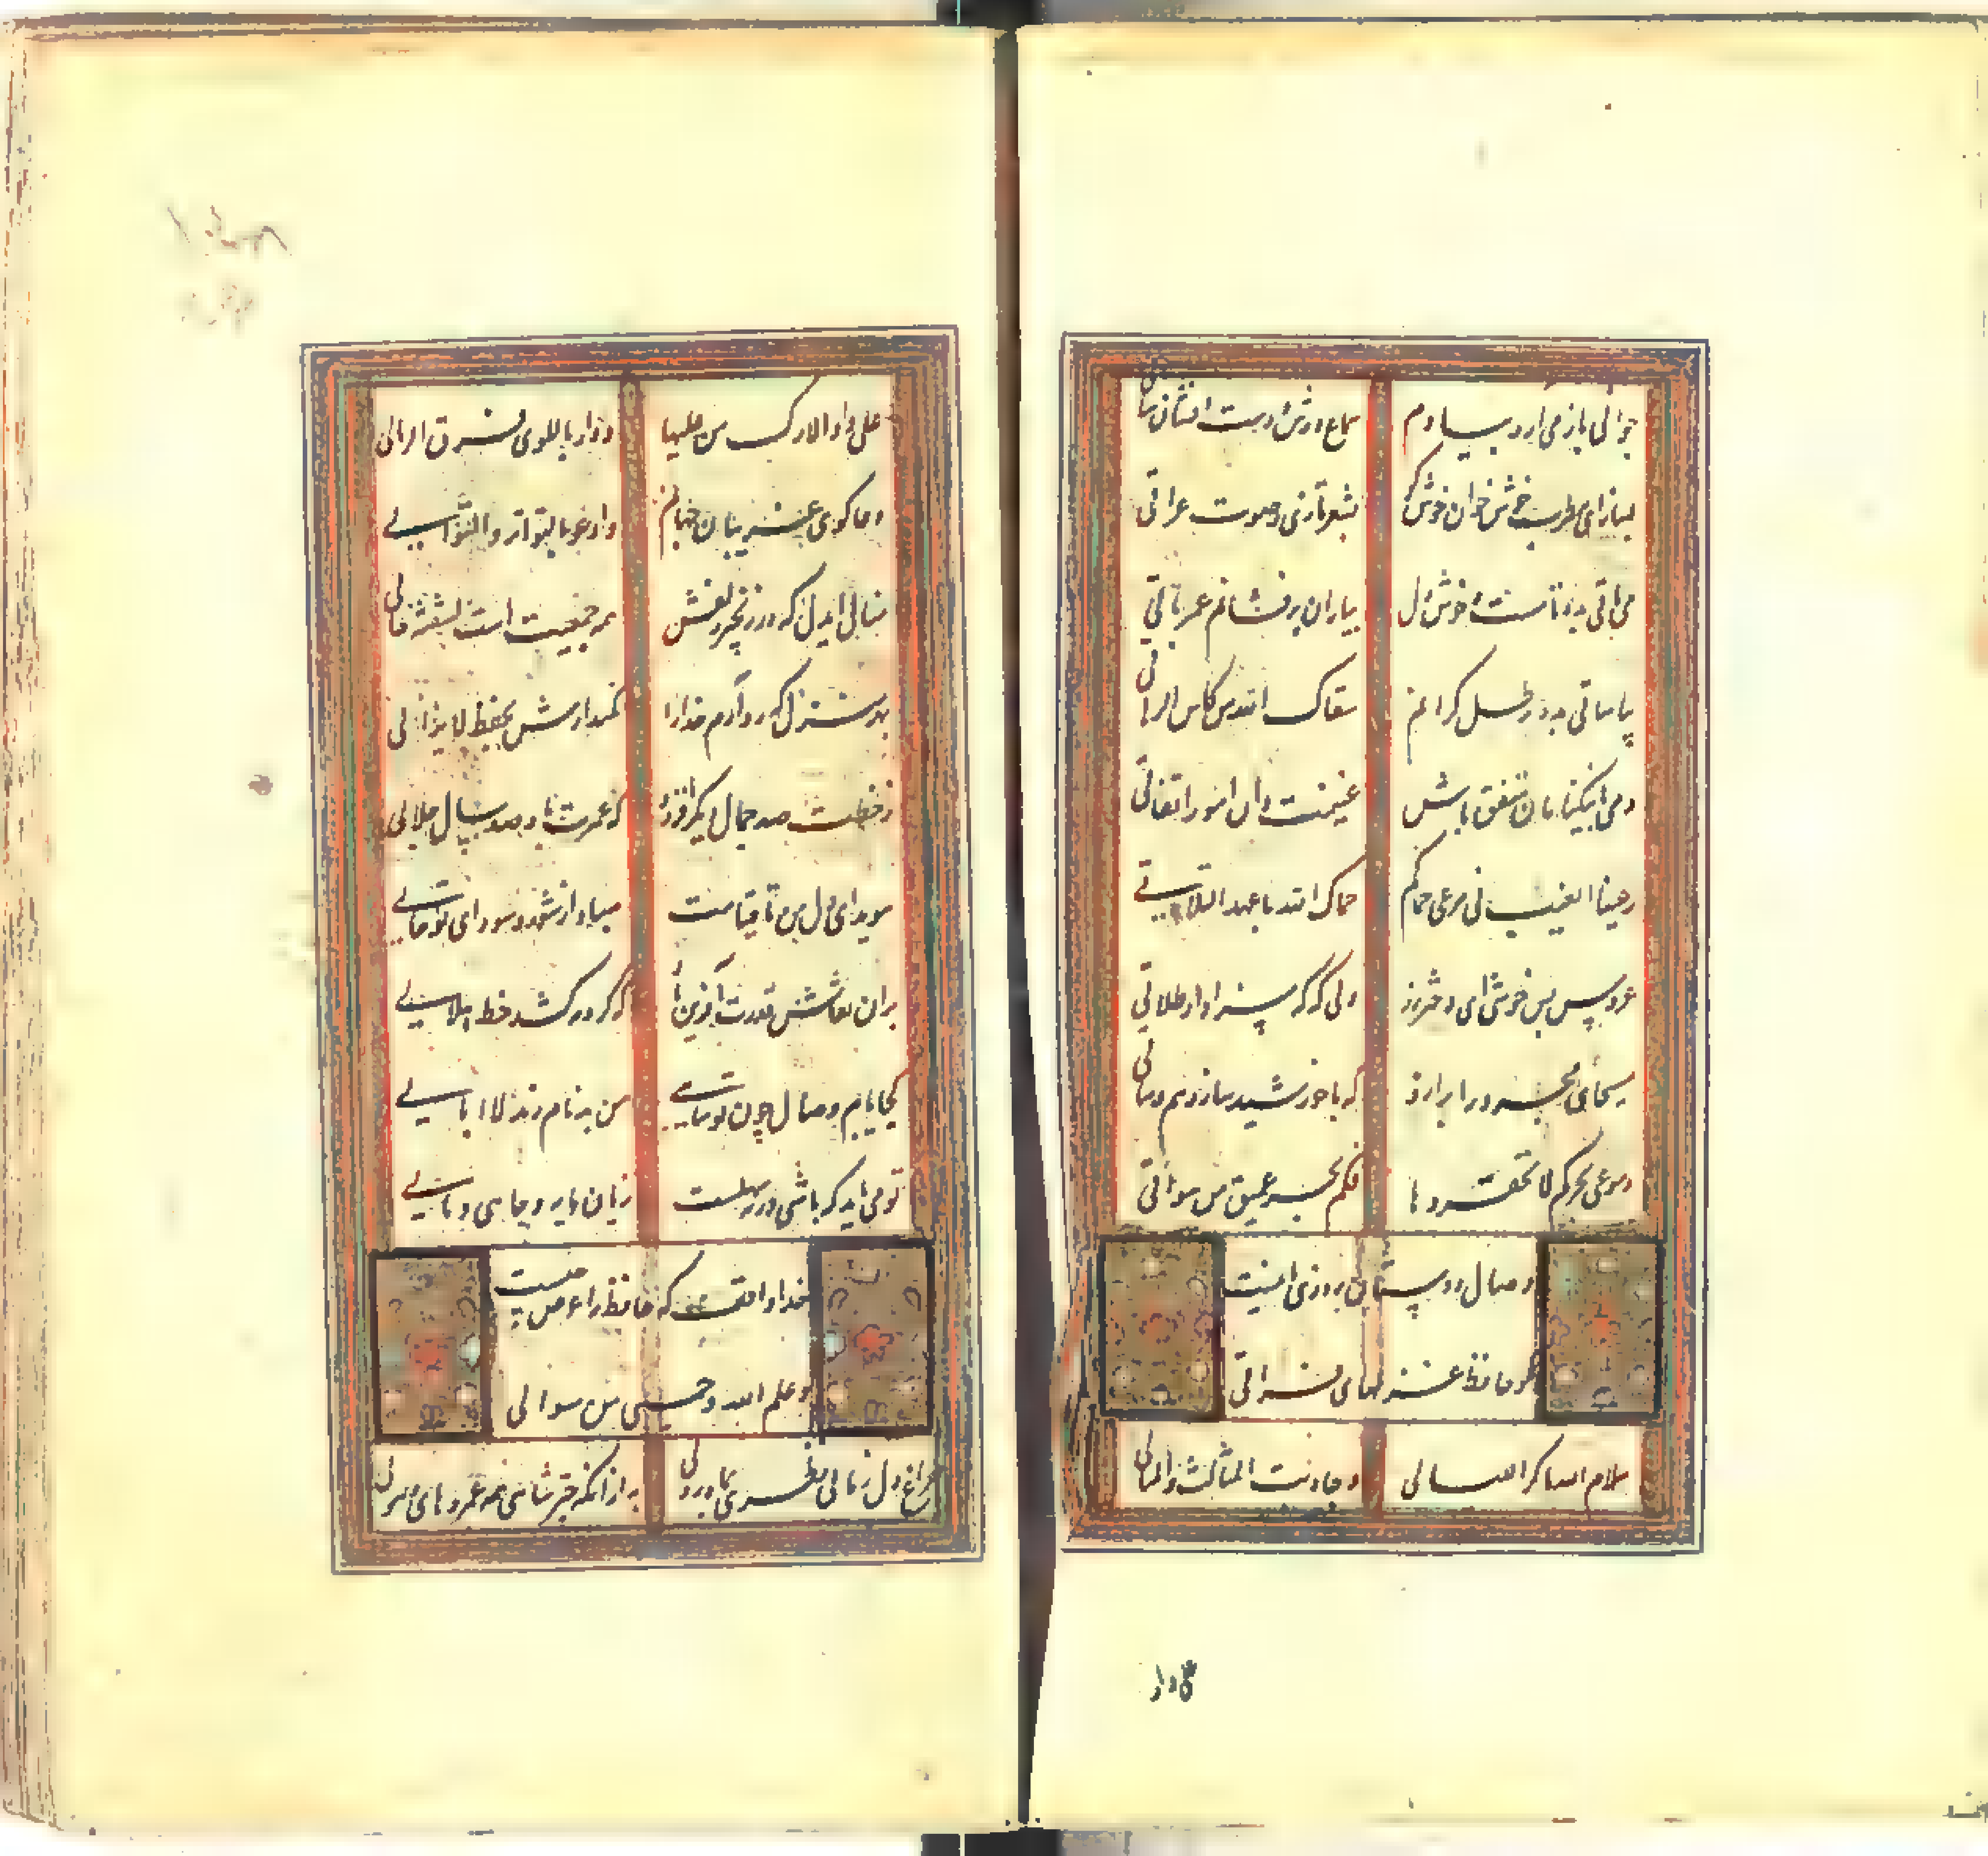 جوانی باز می آرد بیادم سماع و رقص و دست افشان ساقی
بساز ای مطرب خوش خوان خوش گو بشعر تازی و صوت عراقی
می باقی بده تا مست و خوش دل بیاران برفشانم عمر باقی
بیا ساقی بده رطل گرانم سقاک الله من کاس الدهاق
دمی با نیکخواهان متفق باش غنیمت دان امور اتفاقی
ربیع العمر فی مرعی حماکم حماک الله یا عهد التلاقی
عروس بس خوشی ای دختر رز ولی گه گه سزاوار طلاقی
مسیحای مجرد را برازد که با خورشید سازد هم وثاقی
دموعی بعدکم لا تحقروها فکم بحر عمیق من سواقی
وصال دوستان روزی ما نیست
بگو حافظ غزلهای فراقی
سلام الله ما کر اللیالی و جاوبت المثانی و المثالی
علی وادی الاراک من علیها و دار باللوی فوق الرمال
دعاگوی غریبان جهانم وادعو بالتواتر و التوالی
منال ای دل که در زنجیر زلفش همه جمعیت است آشفته حالی
بهر منزل که رو آرد خدا را نگهدارش بحفظ لا یزالی
ز خطت صد جمال دیگر افزود که عمرت باد صد سال جلالی
سویدای دل من تا قیامت مباد از شور و سودای تو خالی
بران نقاش قدرت آفرین باد که گرد مه کشد خط هلالی
کجا یابم وصال چون تو شاهی من بدنام رند لاابالی
تو می باید که باشی ورنه سهلست زیان مایه و جاهی و مالی
خدا داند که حافظ را غرض چیست
و علم الله حسبی من سوالی
فراغ دل زمانی نظری بماه رویی به از آنکه چتر شاهی همه عمر و های و هویی